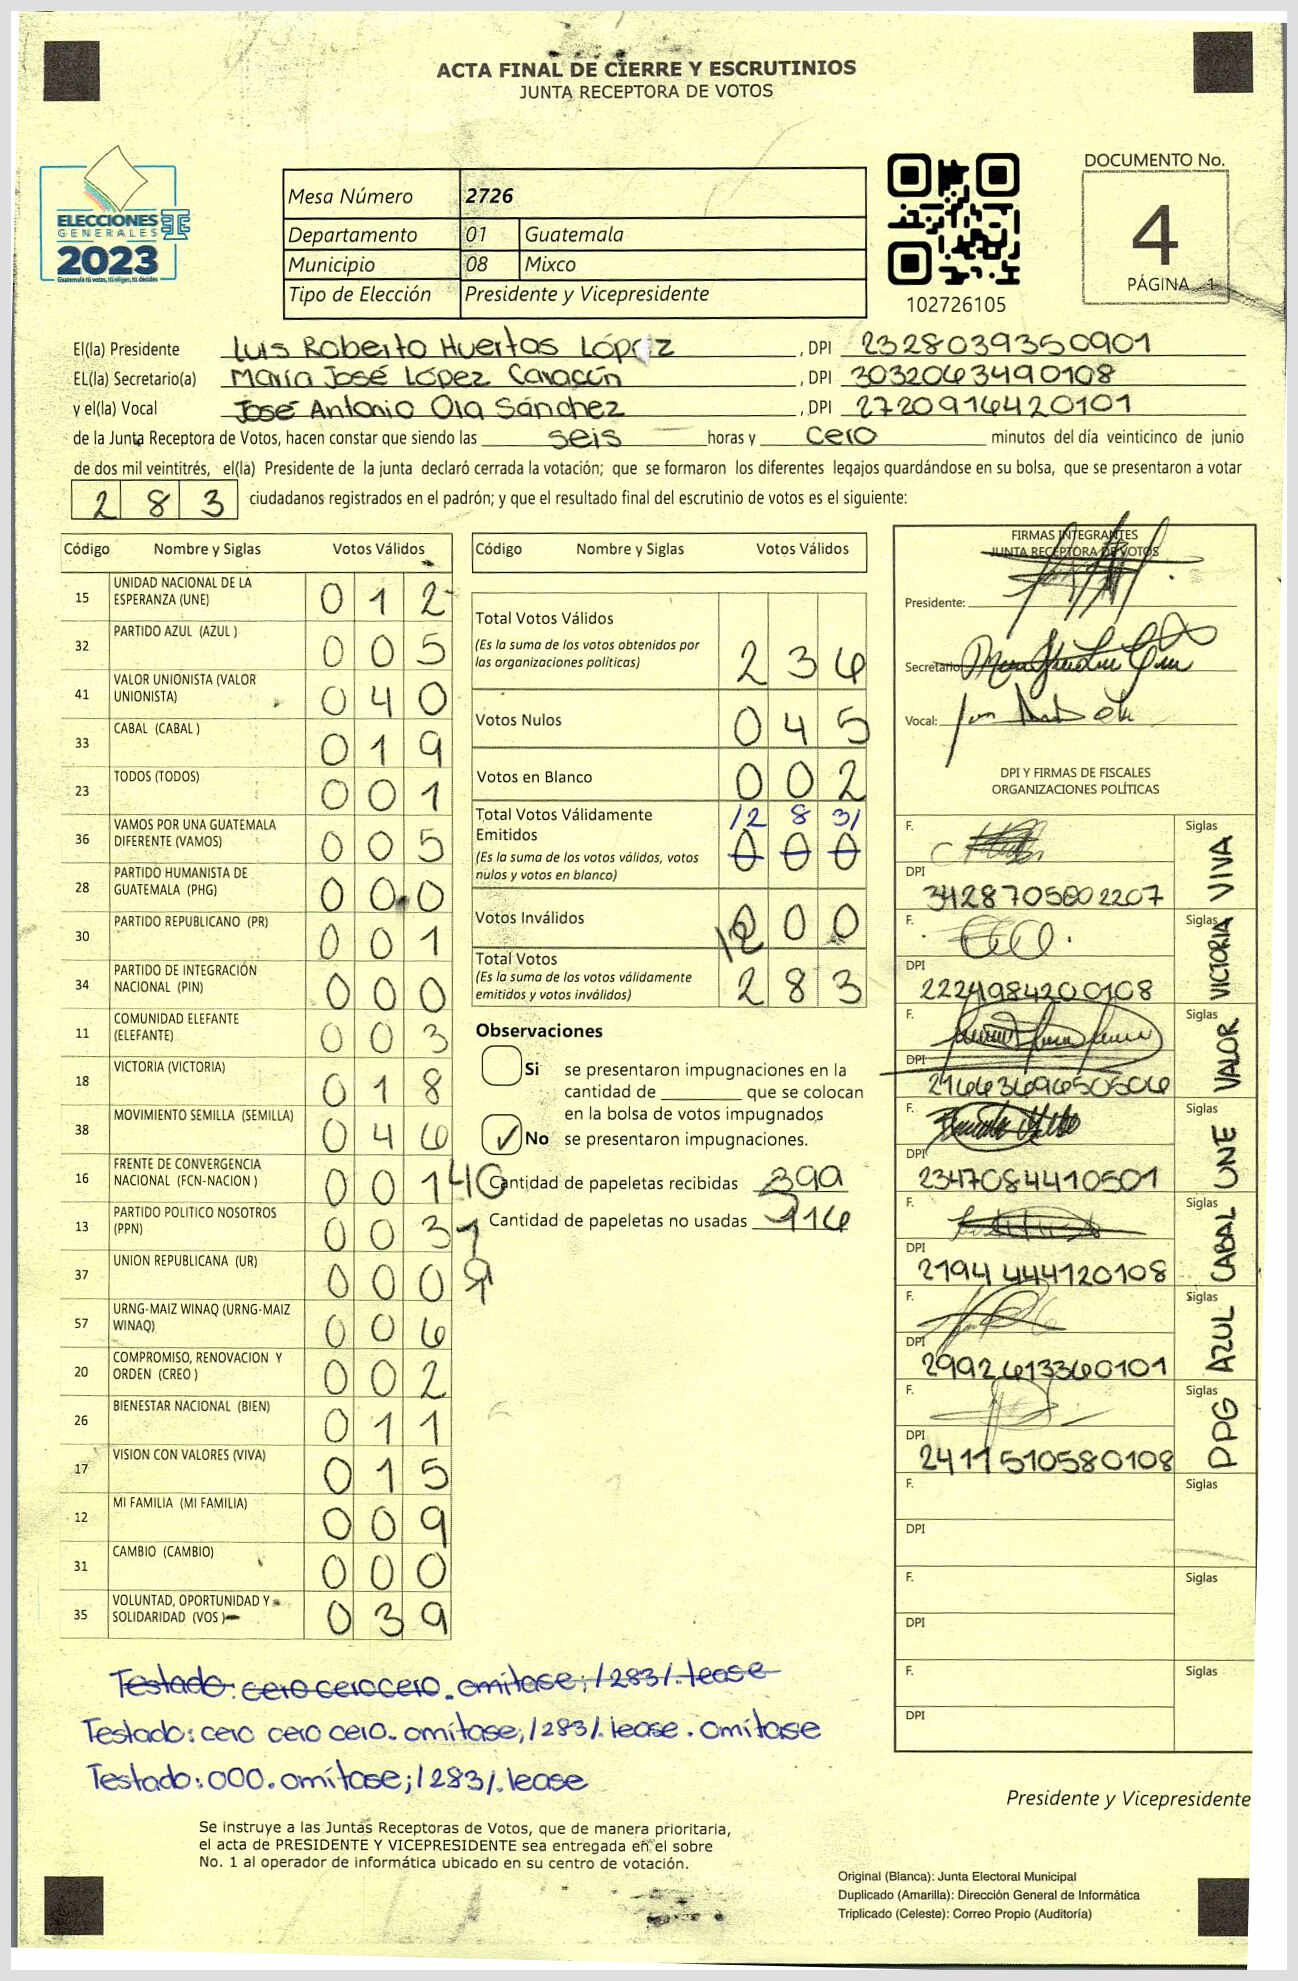 ACTA FINAL DE CIERRE Y ESCRUTINIOS
JUNTA RECEPTORA DE VOTOS
ELECCIONES
GENERALES
2023
Guatemala tú votas, tú eliges, tú decides
Mesa Número 2726
Departamento 01 Guatemala
Municipio 08 Mixco
Tipo de Elección Presidente y Vicepresidente
102726105
DOCUMENTO No.
4
PÁGINA 1
El(la) Presidente Luis Roberto Huertas López, DPI 2328039350901
EL(la) Secretario(a) María José López Caracún, DPI 3032063490108
y el(la) Vocal José Antonio Ola Sánchez, DPI 2720916420101
de la Junta Receptora de Votos, hacen constar que siendo las seis horas y cero minutos del día veinticinco de junio
de dos mil veintitrés, el(la) Presidente de la junta declaró cerrada la votación; que se formaron los diferentes legajos guardándose en su bolsa, que se presentaron a votar
283 ciudadanos registrados en el padrón; y que el resultado final del escrutinio de votos es el siguiente:
Código Nombre y Siglas Votos Válidos
15 UNIDAD NACIONAL DE LA ESPERANZA (UNE) 0 1 2
32 PARTIDO AZUL (AZUL ) 0 0 5
41 VALOR UNIONISTA (VALOR UNIONISTA) 0 4 0
33 CABAL (CABAL ) 0 1 9
23 TODOS (TODOS) 0 0 1
36 VAMOS POR UNA GUATEMALA DIFERENTE (VAMOS) 0 0 5
28 PARTIDO HUMANISTA DE GUATEMALA (PHG) 0 0 0
30 PARTIDO REPUBLICANO (PR) 0 0 1
34 PARTIDO DE INTEGRACIÓN NACIONAL (PIN) 0 0 0
11 COMUNIDAD ELEFANTE (ELEFANTE) 0 0 3
18 VICTORIA (VICTORIA) 0 1 8
38 MOVIMIENTO SEMILLA (SEMILLA) 0 4 6
16 FRENTE DE CONVERGENCIA NACIONAL (FCN-NACION ) 0 0 1
13 PARTIDO POLITICO NOSOTROS (PPN) 0 0 3
37 UNION REPUBLICANA (UR) 0 0 0
57 URNG-MAIZ WINAQ (URNG-MAIZ WINAQ) 0 0 6
20 COMPROMISO, RENOVACION Y ORDEN (CREO ) 0 0 2
26 BIENESTAR NACIONAL (BIEN) 0 1 1
17 VISION CON VALORES (VIVA) 0 1 5
12 MI FAMILIA (MI FAMILIA) 0 0 9
31 CAMBIO (CAMBIO) 0 0 0
35 VOLUNTAD, OPORTUNIDAD Y SOLIDARIDAD (VOS ) 0 3 9
Código Nombre y Siglas Votos Válidos
Total Votos Válidos
(Es la suma de los votos obtenidos por
las organizaciones políticas) 2 3 6
Votos Nulos 0 4 5
Votos en Blanco 0 0 2
Total Votos Válidamente /2 8 3/
Emitidos 0 0 0
(Es la suma de los votos válidos, votos
nulos y votos en blanco)
Votos Inválidos 0 0
Total Votos
(Es la suma de los votos válidamente
emitidos y votos inválidos) 2 8 3
Observaciones
Si se presentaron impugnaciones en la
cantidad de ________ que se colocan
en la bolsa de votos impugnados
✓ No se presentaron impugnaciones.
Cantidad de papeletas recibidas 399
Cantidad de papeletas no usadas 116
FIRMAS INTEGRANTES
JUNTA RECEPTORA DE VOTOS
Presidente:
Secretario:
Vocal:
DPI Y FIRMAS DE FISCALES
ORGANIZACIONES POLÍTICAS
F. Siglas VIVA
DPI 3428705802207
F. Siglas VICTORIA
DPI 2224984200108
F. Siglas VALOR
DPI 2466369650506
F. Siglas UNE
DPI 2347084410501
F. Siglas CABAL
DPI 2194444120108
F. Siglas AZUL
DPI 2992613360101
F. Siglas PPG
DPI 2411510580108
F. Siglas
DPI
F. Siglas
DPI
F. Siglas
DPI
Testado: cero cero cero. omítase; /283/. lease
Testado: cero cero cero. omítase; /283/. lease. omítase
Testado: 000. omítase; /283/. lease
Presidente y Vicepresidente
Se instruye a las Juntas Receptoras de Votos, que de manera prioritaria,
el acta de PRESIDENTE Y VICEPRESIDENTE sea entregada en el sobre
No. 1 al operador de informática ubicado en su centro de votación.
Original (Blanca): Junta Electoral Municipal
Duplicado (Amarilla): Dirección General de Informática
Triplicado (Celeste): Correo Propio (Auditoría)